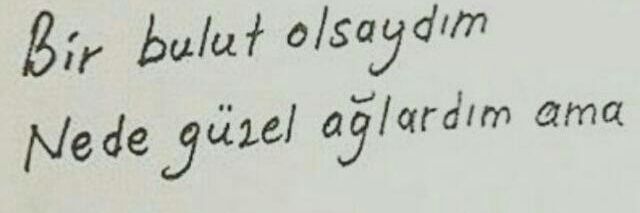 Bir bulut olsaydım
Nede güzel ağlardım ama